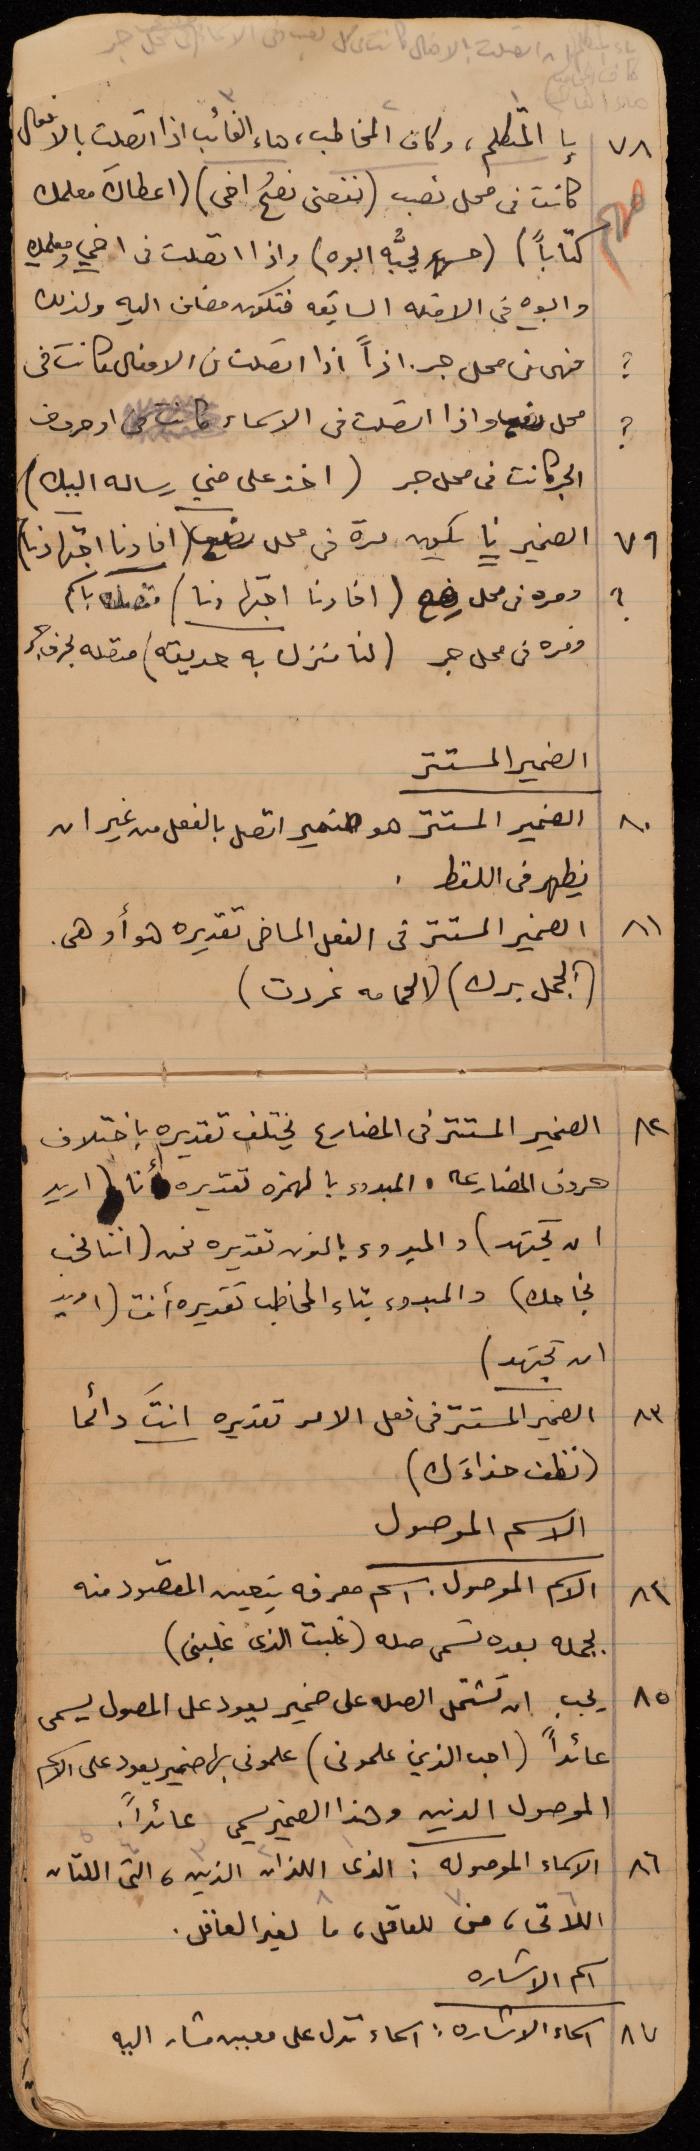 ياء المتكلم ان اتصلت بالافعال كانت في محل نصب وفي الاسماء في محل جر
كاف المخاطب
هاء الغائب
٧٨ يا المتكلم، وكاف المخاطب، هاء الغائب اذا اتصلت بالافعال
كانت في محل نصب (نفعني نصحُ اخي) (اعطاكَ معلمك
مهم
كتاباً) (سهير يحبُّه ابوه) واذا اتصلت في اخي ومعلمك
وابوه في الامثله السابقه فتكون مضاف اليه ولذلك
؟ فهي في محل جر. اذاً اذا اتصلت في الافعال كانت في
؟ محل واذا اتصلت في الاسماء كانت في او حروف
الجر كانت في محل جر (اخذ علي مني رساله اليك)
٧٩ الضمير نا يكون مرة في محل (افادنا اجتهادنا)
؟ ومره في محل رفع (افادنا اجتهادنا) متصله باسم
ومره في محل جر (لنا منزل به حديقه) متصله بحرف جر
الضمير المستتر
٨٠ الضمير المستتر هو ضمير اتصل بالفعل من غير ان
يظهر في اللفظ .
٨١ الضمير المستتر في الفعل الماضي تقديره هو أو هي.
(الجمل برك) (الحمامه غردت)
٨٢ الضمير المستتر في المضارع يختلف تقديره باختلاف
حروف المضارعه . المبدوء بالهمزه تقديره أنا (اريد
ان تجتهد) والمبدوء بالنون تقديره نحن (اننا نحب
نجاحك) والمبدوء بتاء المخاطب تقديره أنت (اريد
ان تجتهد)
٨٣ الضمير المستتر في فعل الامر تقديره انتَ دائما
(نظف حذاءَك)
الاسم الموصول
٨٤ الاسم الموصول: اسم معرفه يتعين المقصود منه
بجمله بعده تسمى صله (غلبت الذي غلبني)
٨٥ يجب ان تشتمل الصله على ضمير يعود على الموصول يسمى
عائداً (احب الذين علموني) علموني بها ضمير يعود على الاسم
الموصول الذين وهذا الضمير يسمى عائداً.
٨٦ الاسماء الموصوله: الذي اللذان الذين، التي اللتان
اللاتي، من للعاقل، ما لغير العاقل.
اسم الاشاره
٨٧ اسماء الاشاره: اسماء تدل على معين مشار اليه